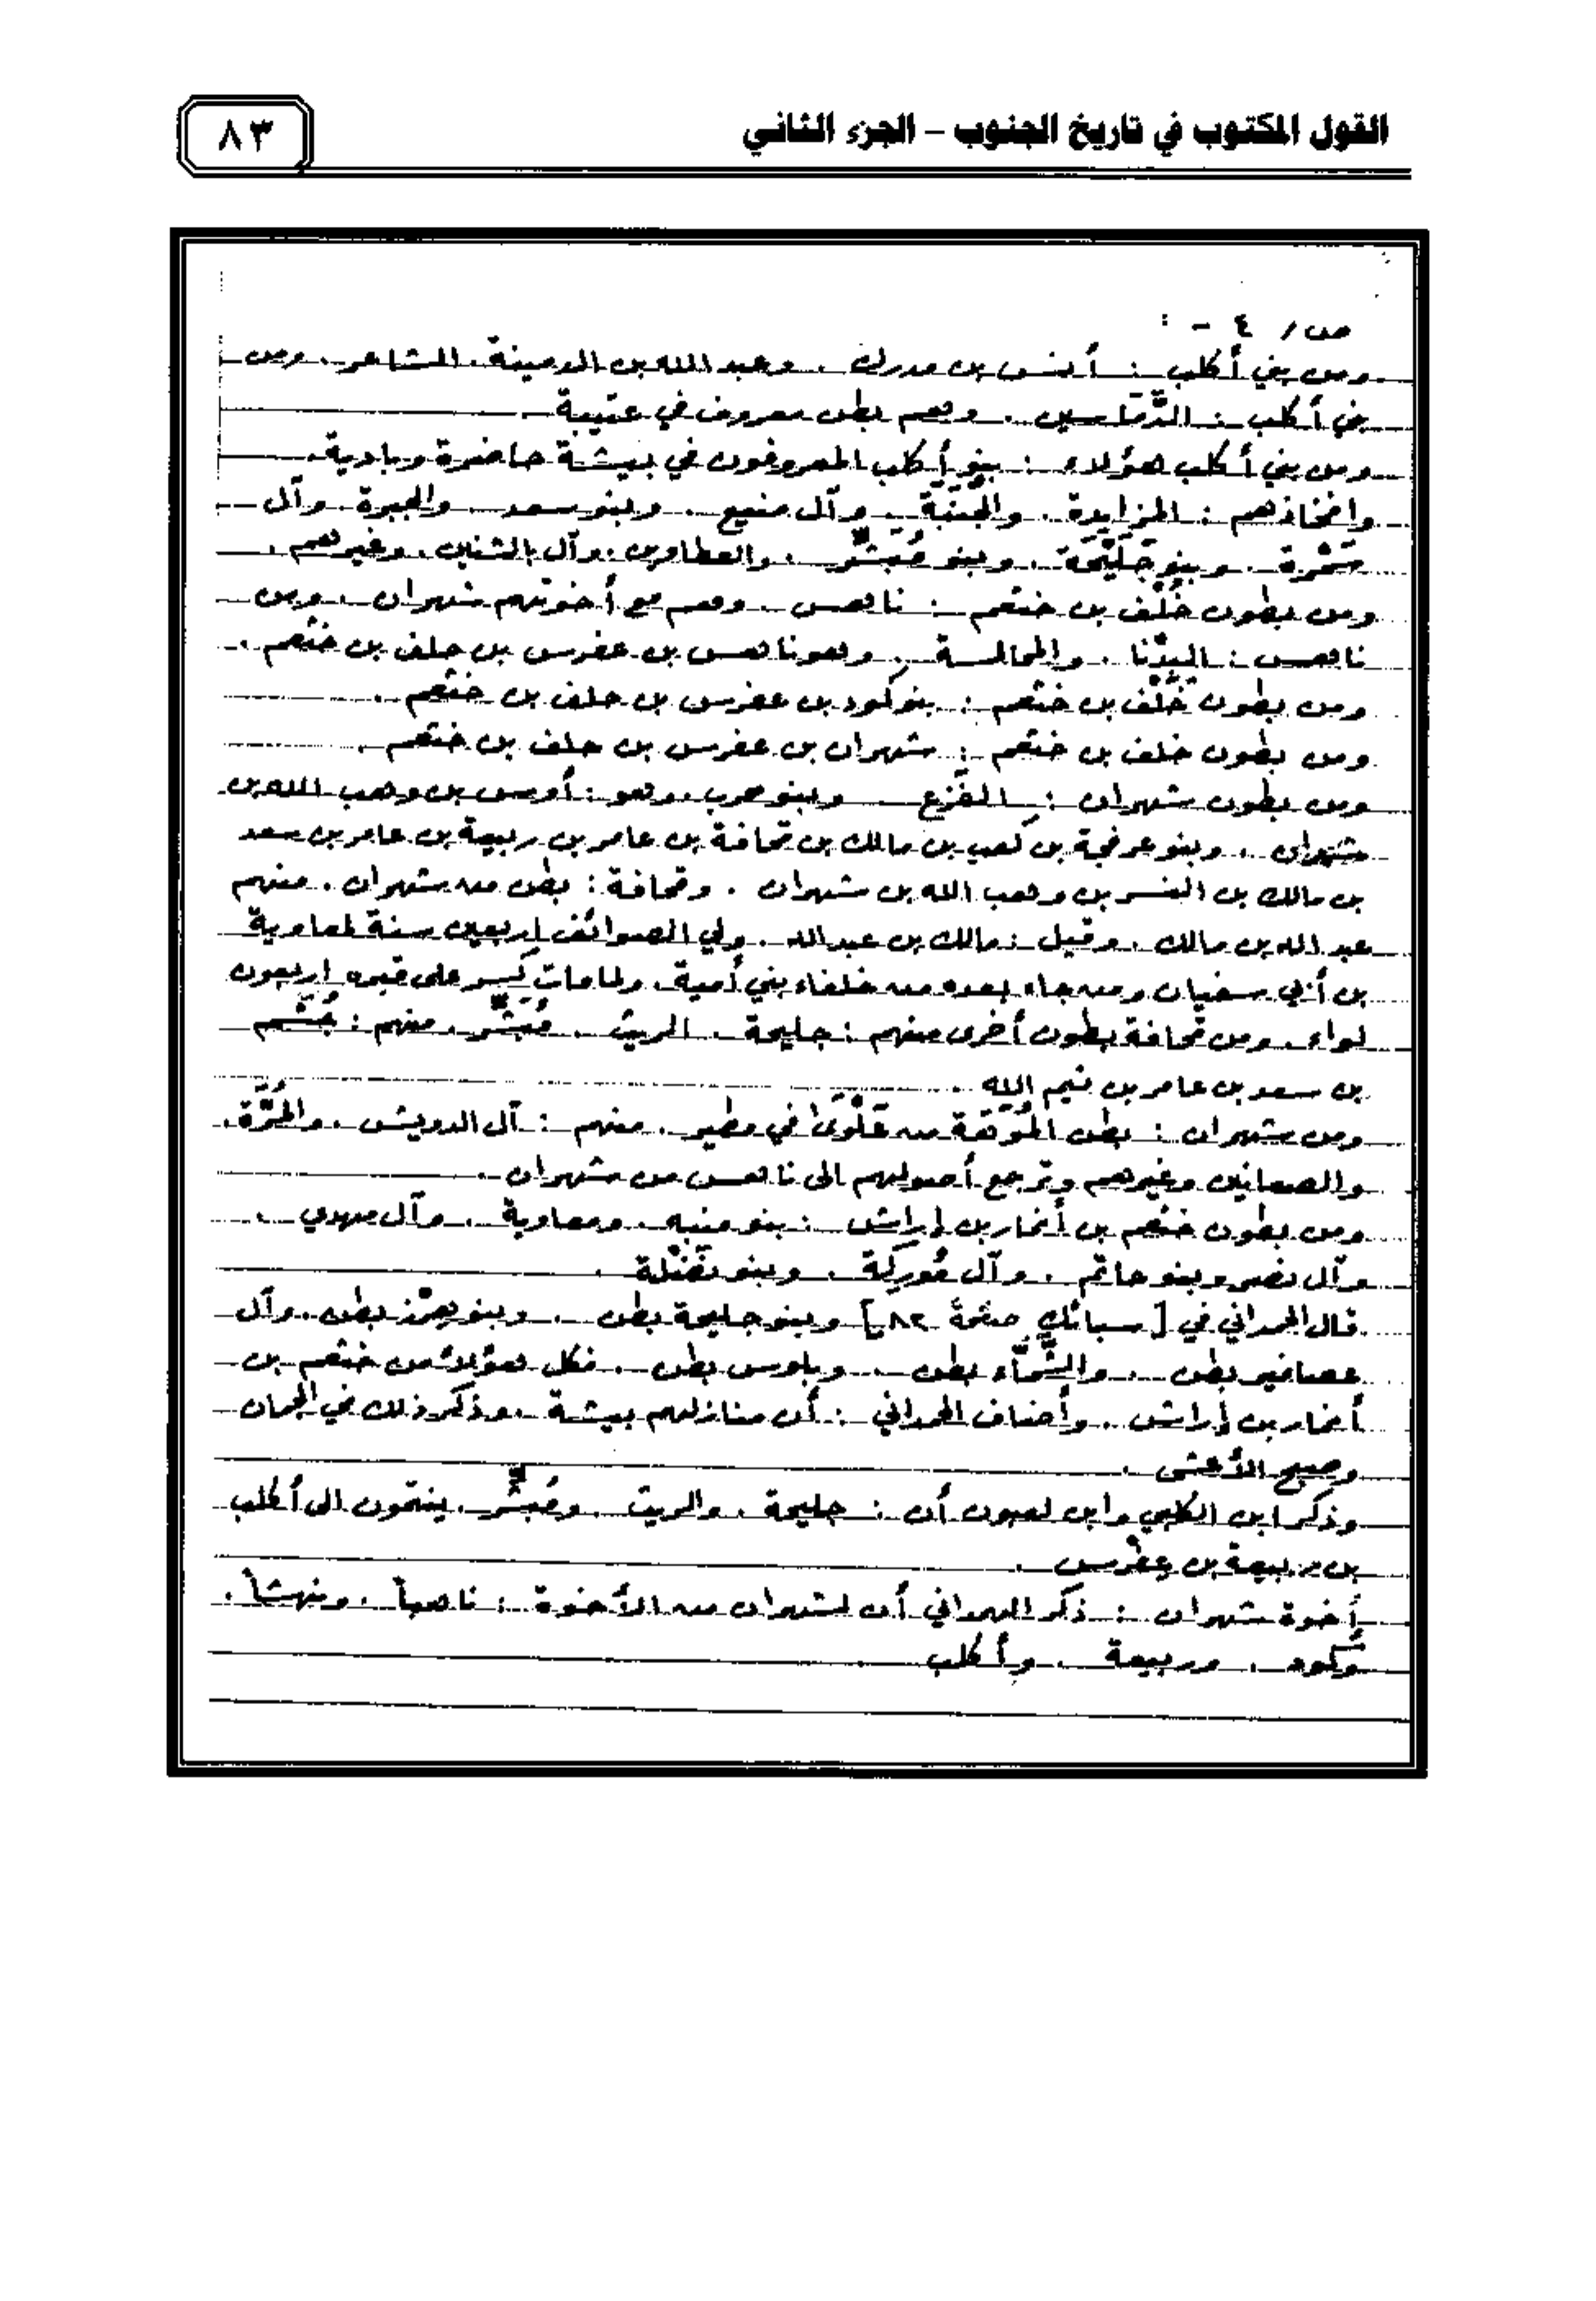 القول المكتوب في تاريخ الجنوب – الجزء الثاني
٨٣
ص / ٤ - :
ومن بني أكلب : أنس بن مدرك . وعبد الله بن الدمينة . الشاعر . ومن
بني أكلب : الدَّمَّاسين . وهم بطن معروف في عتيبة
ومن بني أكلب هؤلاء : بنو أكلب المعروفون في بيشة حاضرة وبادية .
وافخاذهم : المزايدة . والجَنَبَة . وآل منيع . وبنو سعد . والجبرة . وآل
شَمْرة . وبنو جَلِيْحَة . وبنو مُبَشِّر . والعطاوين . وآل بالشنين . وغيرهم .
ومن بطون خَلْف بن خثعم : ناهس . وهم مع أخوتهم شهران . ومن
ناهس : البِدْنا . والمحالسة . وهو ناهس بن عفرس بن حلف بن خثعم .
ومن بطون خَلْف بن خثعم : بنو كود بن عفرس بن حلف بن خثعم .
ومن بطون خلف بن خثعم : شهران بن عفرس بن حلف بن خثعم .
ومن بطون شهران : الفَزَع . وبنو حرب . وهو : أوس بن وهب الله بن
شهران . وبنو عرفجة بن كعب بن مالك بن قحافة بن عامر بن ربيعة بن عامر بن سعد
بن مالك بن النسر بن وهب الله بن شهران . وقحافة : بطن من شهران . منهم
عبد الله بن مالك . وقيل : مالك بن عبدالله . ولي الصوائف اربعين سنة لمعاوية
بن أبي سفيان ومن جاء بعده من خلفاء بني أمية . ولما مات كُسر على قبره اربعون
لواء . ومن قحافة بطون أخرى منهم : جليحة . الريث . مُبَشِّر . منهم : جُشَم
بن سعد بن عامر بن تيم الله .
ومن شهران : بطن المُوَهَة من عَلْوَى في مطير . منهم : آل الدويش . والحُرَّة .
والصعانين وغيرهم وترجع أصولهم الى ناهس من شهران .
ومن بطون خثعم بن أنمار بن إراش : بنو منبه . ومعاوية . وآل مهدي .
وآل نصر وبنو حاتم . وآل مُوركة . وبنو نَضْلة .
قال الحمداني في [ سبائك صفحة ٨٢ ] وبنو جليحة بطن . وبنو هزر بطن . وآل
عصافير بطن . والشَّمَّاء بطن . وبلوس بطن . فكل هؤلاء من خثعم بن
أنمار بن إراش . وأضاف الحمداني : أن منازلهم بيشة . وذكر ذلك في الجمان
وصبح الأعشى .
وذكر ابن الكلبي وابن لعبون أن : جليحة . والريث . ومُبَشِّر . ينتمون الى أكلب
بن ربيعة بن عفرس .
أخوة شهران : ذكر الهمداني أن لشهران من الأخوة : ناهساً . ونهشاً .
وكود . وربيعة . وأكلب